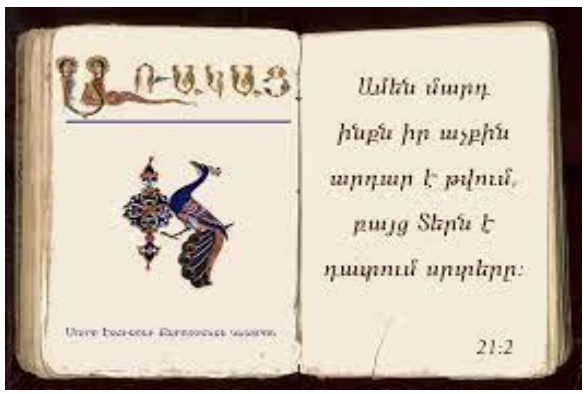 ԱՌԱԿԱՑ
Ամեն մարդ
ինքն իր աչքին
արդար է թվում,
բայց Տերն է
դատում սրտերը:
21:2